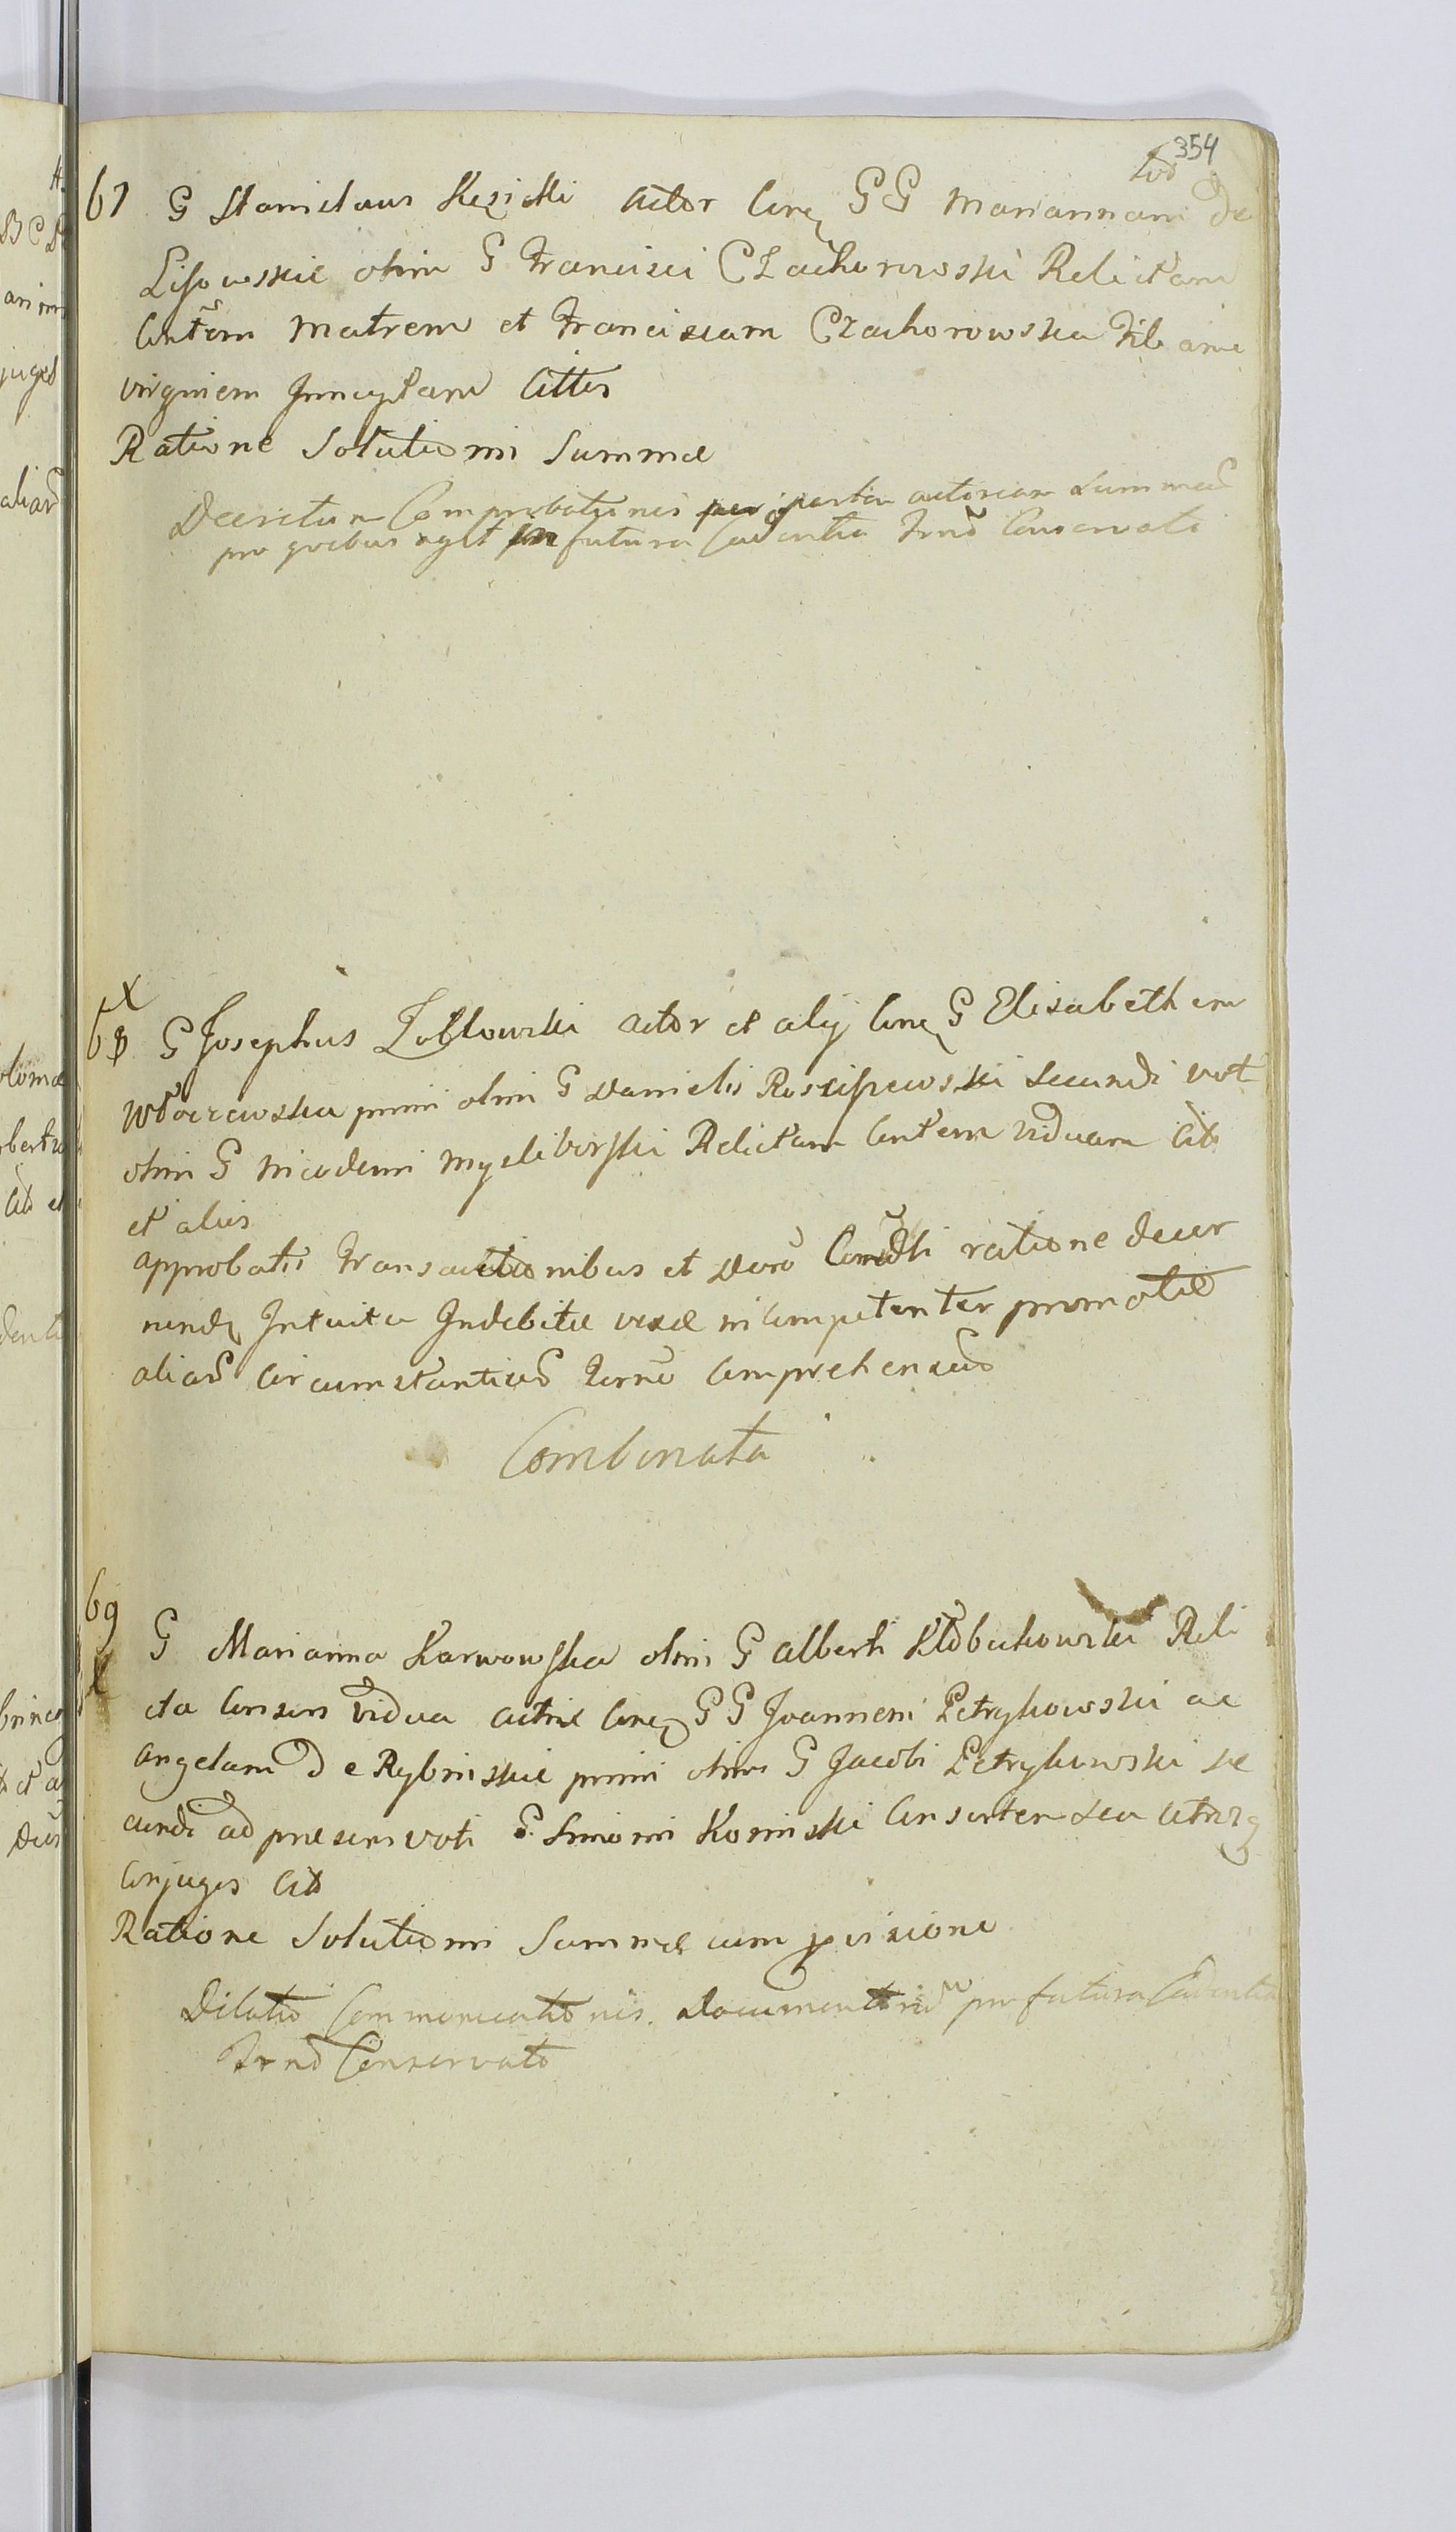 354
67 G Stanislaus Kęsicki Actor Cnrą GG Mariannam De
Lisowskie olim G Francisci CZachorowski Relictam
Cnrtem Matrem et Franciscam Czachorowska Filiam
virginem Innuptam Citts
Ratione Solutionis Summæ
Decretum Comprobationis per partem actoream Summas
pro quibus agit in futura Cadentia Trnō Conservato
X
68 G Josephus Zabłowski Actor et alij Cnrą G Elisabetham
Włoczewska primi olim G Danielis Rosciszewski Secundi vot
olim G Nicodemi Mysliborski Relictam Cnrtem Viduam Cit
et alios
approbatis transactionibus et Decrō Condti ratione decer
nendą Intuitu Indebitæ vexæ incompetenter promotæ
alias Circumstantias Terrnō Comprehensas
Combinata
69 G Marianna Karwowska olim G Alberti Kłobukowski Reli
cta Consors vidua Actrix Cnrą GG Joannem Petrykowski ac
Angelam De Rybinskie primi olim G Jacobi Petrykowski se
cundi ad præsens voti G. Simonis Kominski Consortem seu utrosq
Conjuges Cit
Ratione Solutionis Summæ cum provisione
Dilatio Communicationis Documentorum pro futura Cadentia
Trnō Conservato